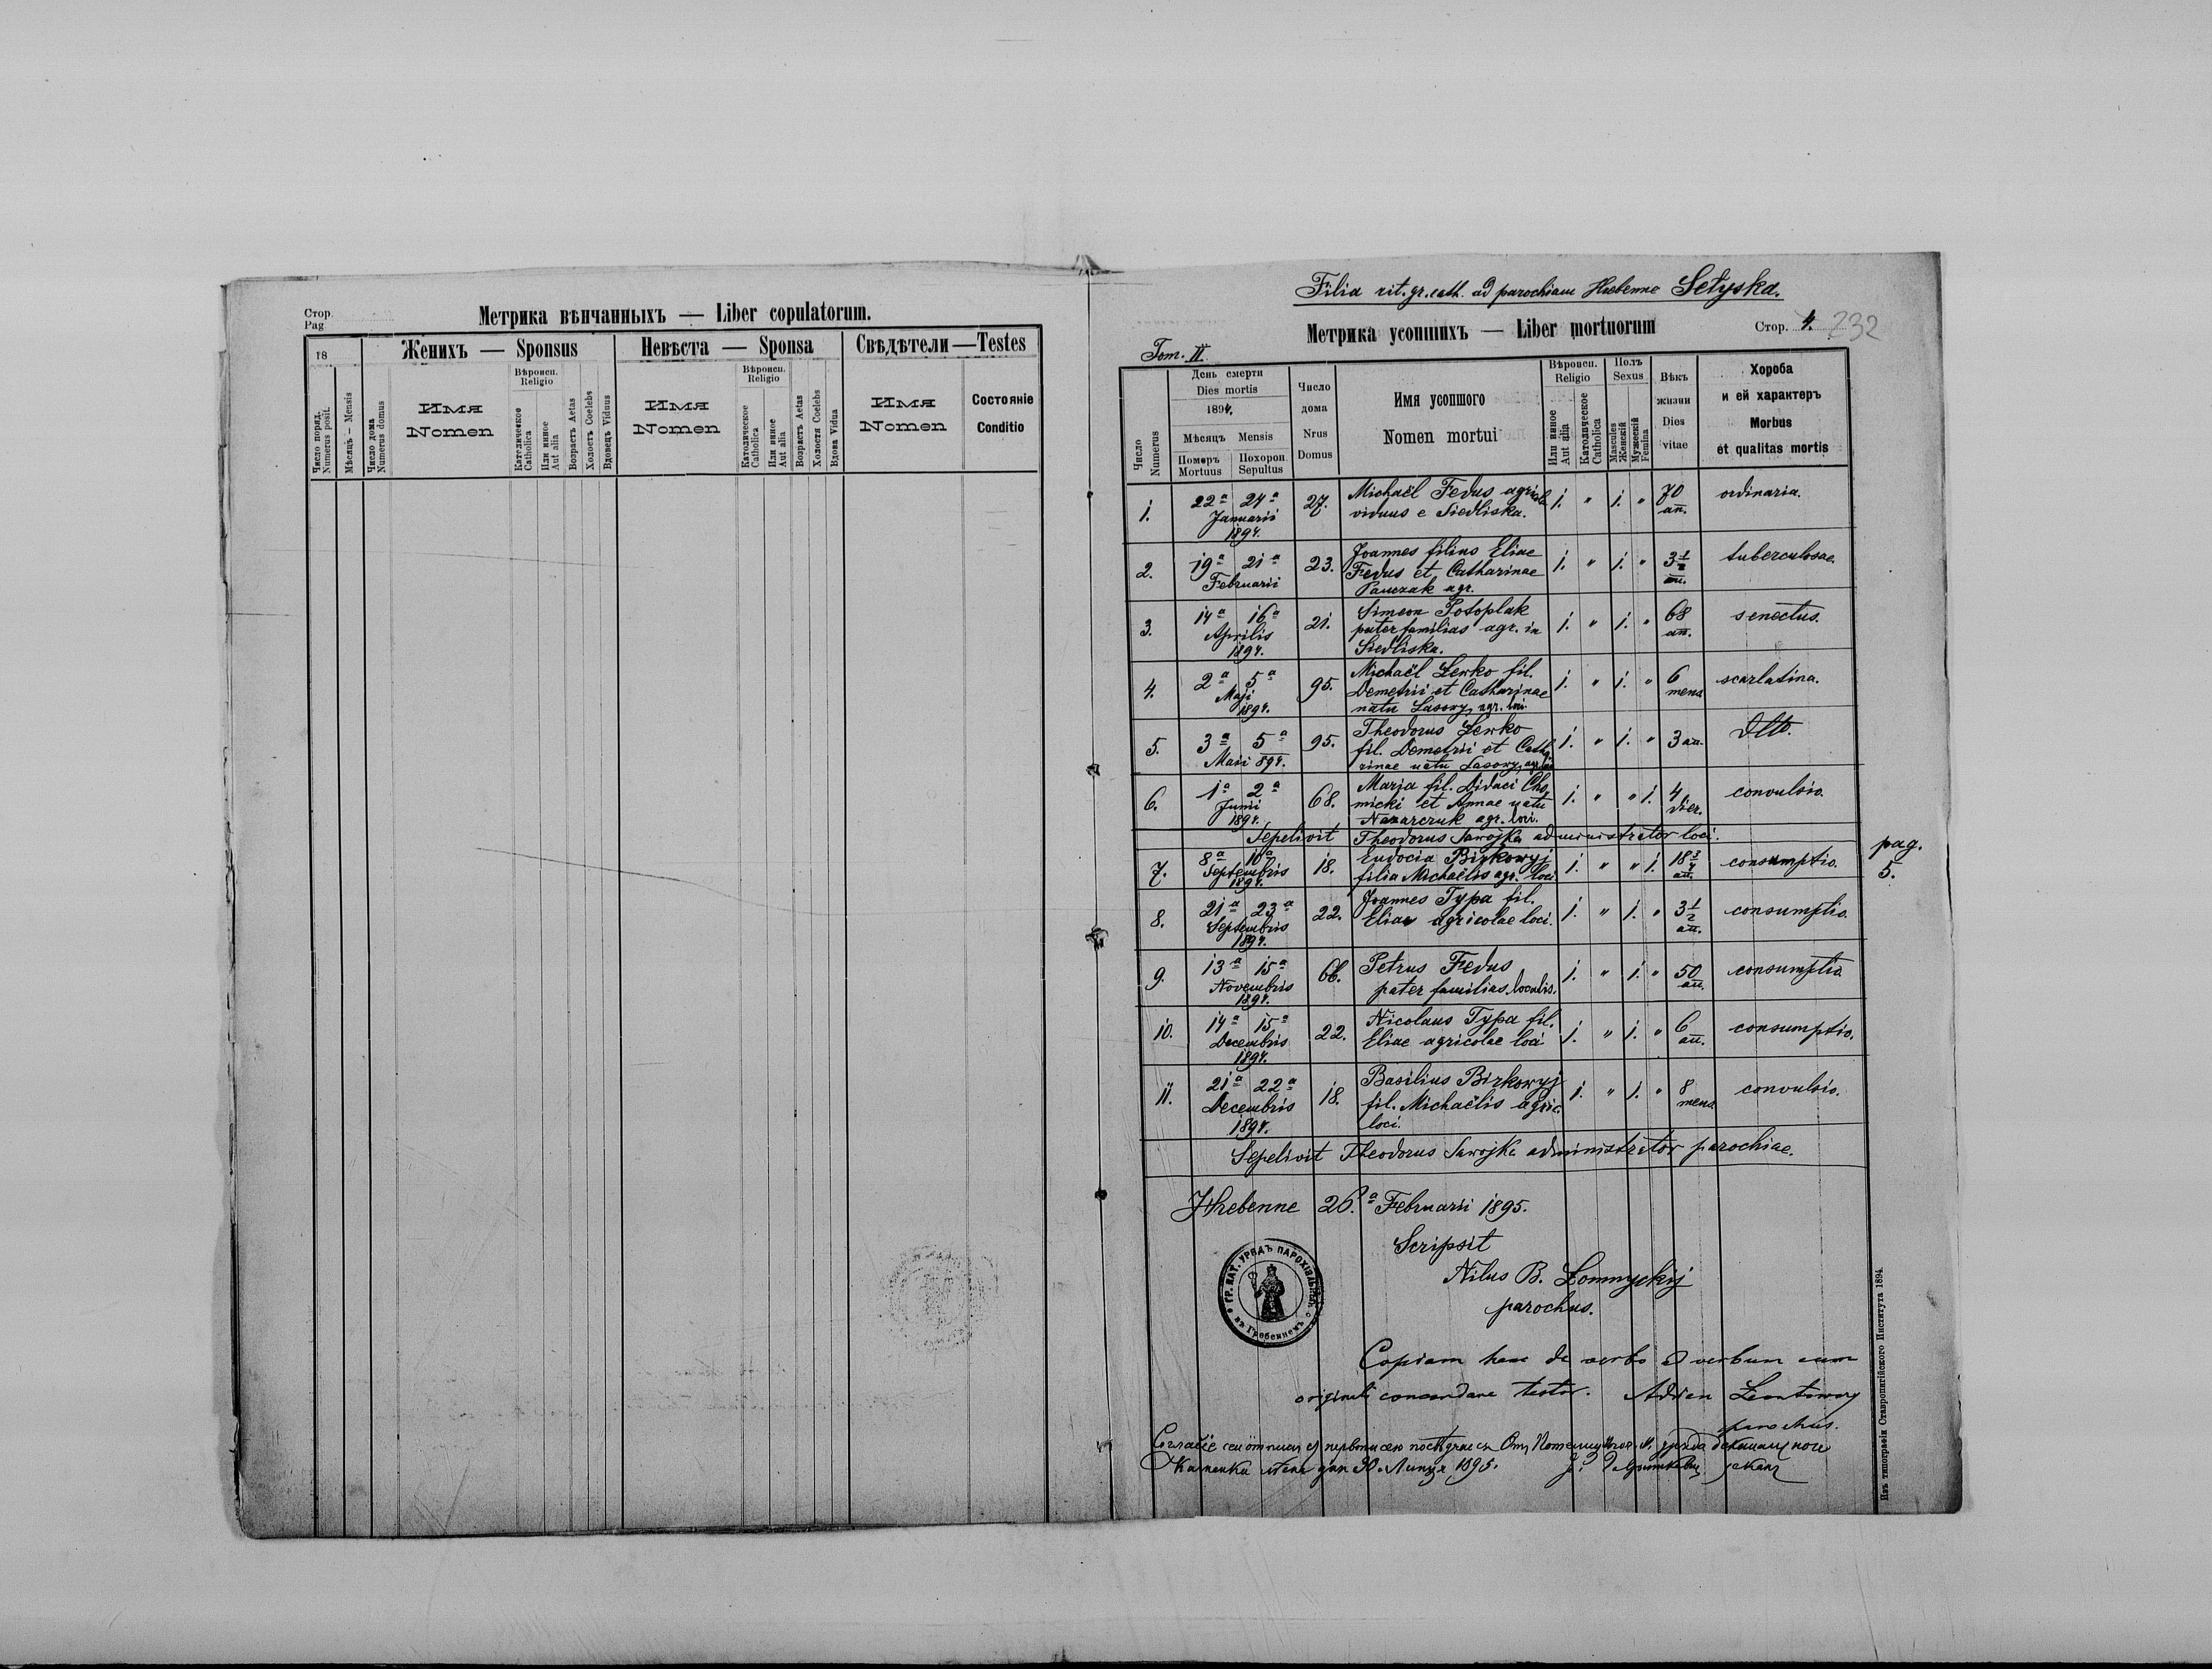 Стор.
Pag
Метрика вѣнчанныхъ — Liber copulatorum.
18
Женихъ — Sponsus
Невѣста — Sponsa
Свѣдѣтели — Testes
Число поряд.
Numerus posit.
Мѣсяцъ — Mensis
Число дома
Numerus domus
Имя
Nomen
Вѣроисп.
Religio
Католическое
Catholica
Или инное
Aut alia
Возрастъ Aetas
Холостъ Coelebs
Вдовецъ Viduus
Имя
Nomen
Вѣроисп.
Religio
Католическое
Catholica
Или инное
Aut alia
Возрастъ Aetas
Холостя Coelebs
Вдова Vidua
Имя
Nomen
Состояніе
Conditio
Filia rit. gr. cath. ad parochiam Hrebenne Setyska.
Метрика усопшихъ — Liber mortuorum
Стор. 4.
232
Tom. II.
Число
Numerus
День смерти
Dies mortis
1894.
Мѣсяцъ Mensis
Померъ
Mortuus
Похорон.
Sepultus
Число
дома
Nrus
Domus
Имя усопшого
Nomen mortui
Вѣроисп.
Religio
Или инное
Aut alia
Католическое
Catholica
Полъ
Sexus
Mascules
Женскій
Мужескій
Femina
Вѣкъ
жизни
Dies
vitae
Хороба
и ей характеръ
Morbus
et qualitas mortis
1. 22a 24a Januarii 1894. 27. Michaël Fedus agricola viduus e Siedliska. 1. " 1. " 70 an. ordinaria.
2. 19a 21a Februarii 23. Joannes filius Eliae Fedus et Catharinae Panczak agr. 1. " 1. " 3 1/2 an. tuberculosae.
3. 14a 16a Aprilis 1894. 21. Simeon Potoplak pater familias agr. in Siedliska. 1. " 1. " 68 an. senectus.
4. 2a 5a Maji 1894. 95. Michaël Lewko fil. Demetrii et Catharinae natu Lasowy, agr. loci. 1. " 1. " 6 mens scarlatina.
5. 3a 5a Maii 894. 95. Theodorus Lewko fil. Demetrii et Catharinae natu Lasowy, agr. 1. " 1. " 3 an. dtto.
6. 1a 2a Junii 1894. 68. Maria fil. Didaci Chomicki et Annae natu Nazarczuk agr. loci. 1. " " 1. 4 dier. convulsio.
Sepelivit Theodorus Sawojka administrator loci.
7. 8a 10a Septembris 1894. 18. Eudocia Birkowyj filia Michaëlis agr. loci. 1. " " 1. 18 3/4 an. consumptio.
pag.
5.
8. 21a 23a Septembris 1894. 22. Joannes Typa fil. Eliae agricolae loci. 1. " 1. " 3 1/2 an. consumptio.
9. 13a 15a Novembris 1894. 66. Petrus Fedus pater familias localis. 1. " 1. " 50 an. consumptio
10. 14a 15a Decembris 1894. 22. Nicolaus Typa fil. Eliae agricolae loci 1. " 1. " 6 an. consumptio.
11. 21a 22a Decembris 1894. 18. Basilius Birkowyj fil. Michaëlis agric. loci. 1. " 1. " 8 mens convulsio.
Sepelivit Theodorus Sawojka administrator parochiae.
Hrebenne 26.a Februarii 1895.
Scripsit
Nilus B. Lomnyckij
parochus.
ГР. КАТ. УРЯДЪ ПАРОХІЯЛЬНЫЙ
въ Гребеннемъ
Copiam hanc de verbo ad verbum cum
originali concordare testor. Adrian
parochus.
30. 1895.
Изъ типографіи Ставропигійского Института 1894.